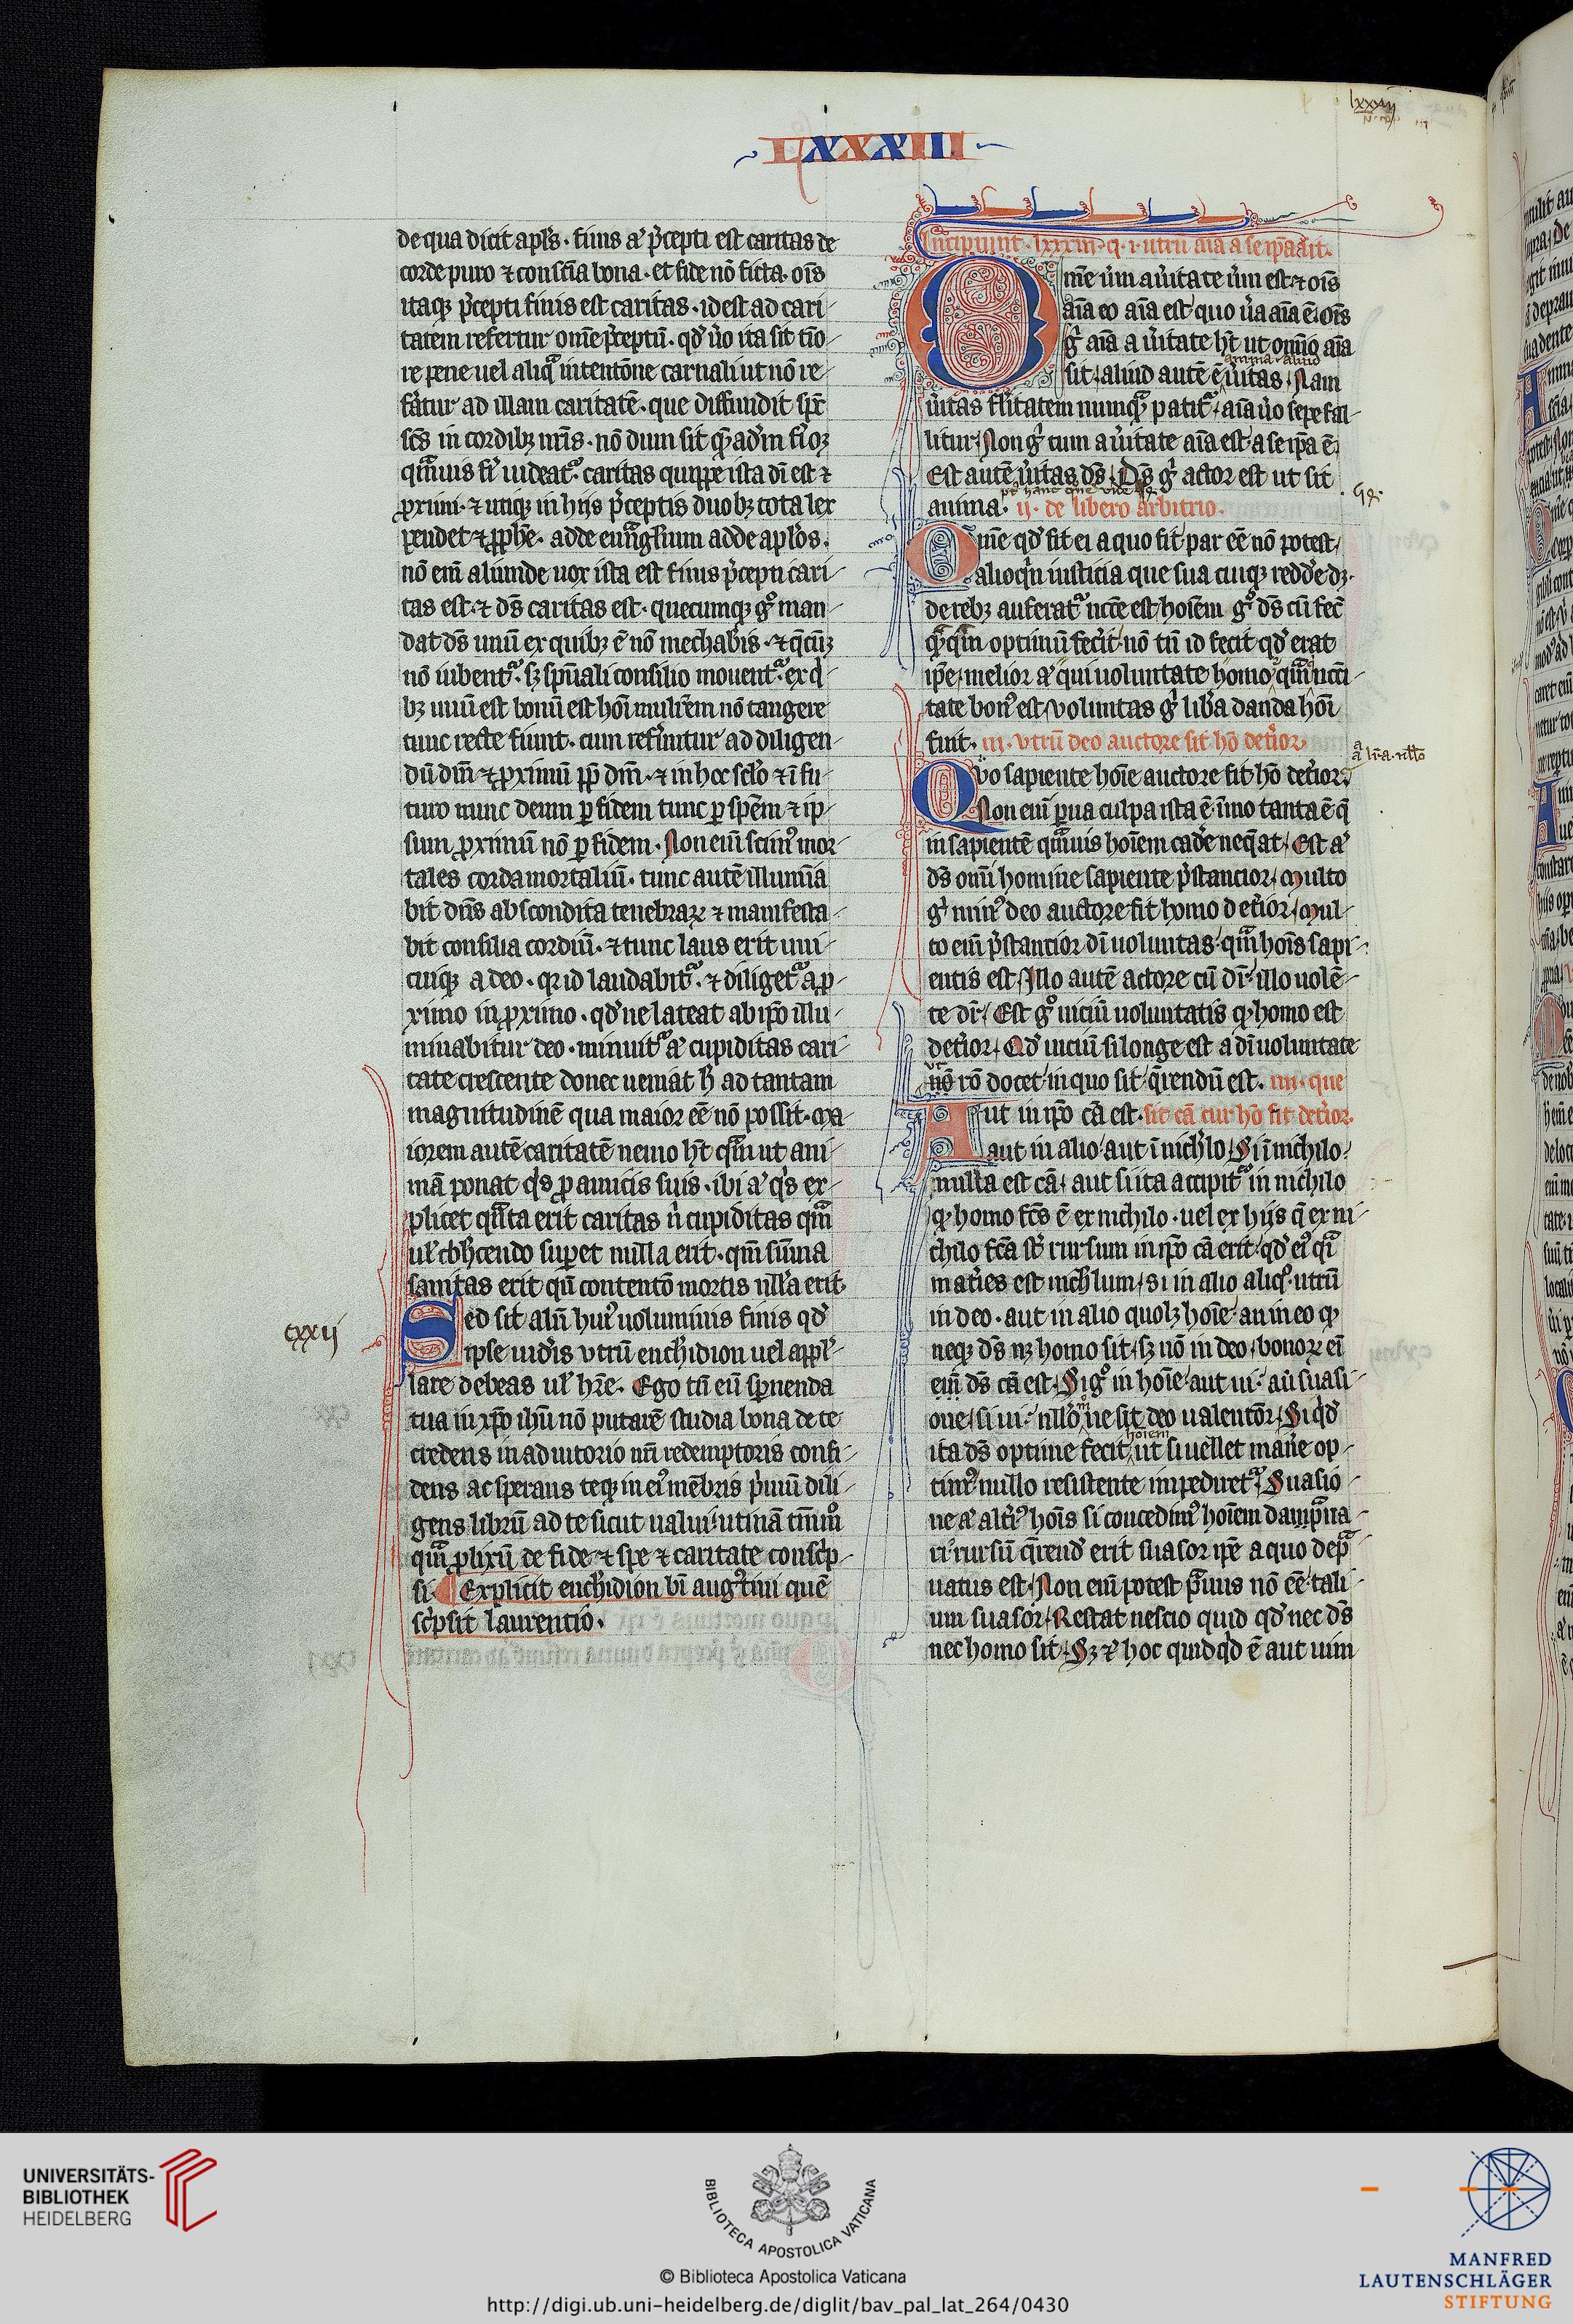 LXXXIII
lxxxiij
de qua dicit apl's. finis aͤ p̉cepti est caritas de
corde puro ⁊ consciā bona. et fide nō ficta. oīs
itaq; p̉cepti finis est caritas. id est ad cari-
tatem refertur om̄e p̉ceptū. qd' ũo ita fit tīo-
re pene uel aliqͣ intentōne carnali ut nō re-
fatur ad illam caritatē. que diffundit spc̄
scs̄ in cordib; nr̄is. nō dum fit qͣad'm fi'oꝫ
qͣmuis fi'i uideatͣ. caritas quippe ista dī est ⁊
ꝓximi. ⁊ utiq; in hijs p̉ceptis duob; tota lex
pendet ⁊ ꝓph̄e. adde euāglium adde apl'os.
nō em̄ aliunde uox ista est finis p̉cepti cari-
tas est. ⁊ ds̄ caritas est. quecumq; gͦ man-
dat ds̄ unū ex quib; ē nō mechab'is. ⁊ q̄cūꝫ
nō iubentͣ. sꝫ spūali consilio mouentͣ. ex q'-
b; unū est bonū est hōi mulr̄em nō tangere
tunc recte fiunt. cum refūntur ad diligen-
dū dm̄ ⁊ ꝓximū ꝓp̄ dm̄. ⁊ in hoc scl'o ⁊ ī fu-
turo nunc deum ꝑ fidem tunc ꝑ spēm ⁊ ip-
sum ꝓximū nō ꝑ fidem. Non em̄ scim' mor-
tales corda mortaliū. tunc autē illumīa
bit dn̄s abscondita tenebraꝝ ⁊ manifesta-
bit consilia cordiū. ⁊ tunc laus erit uni-
cuiq; a deo. qꝛ id laudabitͣ. ⁊ diligetͣ a ꝓ-
ximo in ꝓximo. qd' ne lateat ab ip̄o illu-
minabitur deo. minuitͣ aͤ cupiditas cari-
tate crescente donec ueniat h̄ ad tantam
magnitudinē qua maior eē nō possit. ma-
iorem autē caritatē nemo h̄t qͣm ut ani-
mā ponat q's ꝓ amicis suis. ibi aͤ q's ex-
plicet qͣnta erit caritas ū cupiditas qͣm
ul' cohercendo supet nulla erit. qm̄ sūma
sanitas erit qn̄ contentō mortis null'a erit.
cxxij
Sed sit alīn hui' uoluminis finis qd'
ipse uid'is vtrū enchidion uel appl'-
lare debeas ul' hr̄e. Ego tn̄ cū spernenda
tua in xp̄o ihū nō putarē studia bona de te
credens in adiutorio nr̄i redemptoris confi-
dens ac sperans teq; in ei' mēbris p̉mū dili-
gens librū ad te sicut ualui utinā tm̄moͦ
qͣm ꝓlixū de fide ⁊ spe ⁊ caritate consc'p-
si. Explicit enchidion bī aug'tini quē
sc'psit laurentio.
Incipiunt. lxxxiij. q. i. utrū aīa a se ip̄a sit.
Om̄e ũm a ũitate ũm est. ⁊ oīs
aīa eo aīa est quo ũa aīa ē. oīs
g' aīa a ũitate h̄t ut omīo aīa
sit. aliud autē ē ũitas. Nam
anima aliud
ũitas fl'itatem nunqͣ patitͣ. aīa ũo sepe fal-
litur. Non g' cum a ũitate aīa est. a se ip̄a ē.
Est autē ũitas ds̄. Ds̄ g' actor est ut sit
anima. ij. de libero arbitrio.
Om̄e qd' fit ei a quo fit par eē nō potest.
alioq'n iusticia que sua cuiq; redd'e dꝫ.
de reb; auferatͣ nccē est. hoīem gͦ ds̄ cū fec'
qͣqͣm optimū fec'it. nō tn̄ id fecit qd' erat
ip̄e. melior aͤ qui uoluntate homo qͣm ncci-
tate bon' est. voluntas g' lib'a danda hōi
fuit. iij. vtrū deo auctore sit hō det'ior.
Quo sapiente hoīe auctore fit hō det'ior.
Non em̄ ꝑua culpa ista ē. imo tanta ē q̄
in sapientē qͣmuis hoīem cad'e neq̄at. Est aͤ
ds̄ omī homine sapiente p̉stancior. Multo
g' min' deo auctore fit homo det'ior. Mul-
to em̄ p̉stantior dī uoluntas. qͣm hoīs sapi-
entis est. Illo autē actore cū dr̄. illo uolē-
te dr̄. Est gͦ uiciū uoluntatis qͦ homo est
det'ior. Qd' uiciū si longe est a dī uoluntate
ut
nō rō docet in quo sit. q̄rendū est. iiij. que
Aut in ip̄o cā est. sit cā cur hō fit det'ior.
aut in alio. aut ī nichilo. Si ī nichilo.
nulla est cā. aut si ita accipitͣ in nichilo
qͦ homo fc̄s ē ex nichilo. uel ex hijs q̄ ex ni-
chilo fc̄a st̄. rursum in ip̄o cā erit. qd' ei' q'i
mat'ies est nichilum. si in alio aliqͦ. utrū
in deo. aut in alio quolꝫ hoīe. an in eo qͦ
neq; ds̄ nꝫ homo sit. sꝫ nō in deo. bonoꝝ eī
em̄ ds̄ cā est. Si gͦ in hoīe. aut ui. aū suasi-
one. si ui. nullo ne sit deo ualentōr. Si qd'
hoīem
ita ds̄ optime fecit ut si uellet man'e op-
tim' nullo resistente impediretͣ. Suasio-
ne aͤ alt'i' hoīs si concedim' hoīem dampͣna-
ri. rursū q̄rend' erit suasor ip̄e a quo depͣ-
uatus est. Non em̄ potest pͣuus nō eē tali-
um suasor. Restat nescio quid qd' nec ds̄
nec homo sit. Sꝫ ⁊ hoc quid qd ē aut uim
UNIVERSITÄTS-
BIBLIOTHEK
HEIDELBERG
BIBLIOTECA APOSTOLICA VATICANA
© Biblioteca Apostolica Vaticana
http://digi.ub.uni-heidelberg.de/diglit/bav_pal_lat_264/0430
MANFRED
LAUTENSCHLÄGER
STIFTUNG